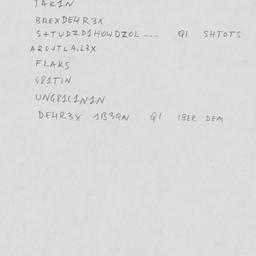 TAK1N
BREXDE4R3X
S+TUDZD1HOWDZOL --- Q1 SHTOTS
AROUTLA.L3X
FLAKS
481TIN
UNG81C1N1N
DE4R3X 1B3AN Q1 1BER DEM